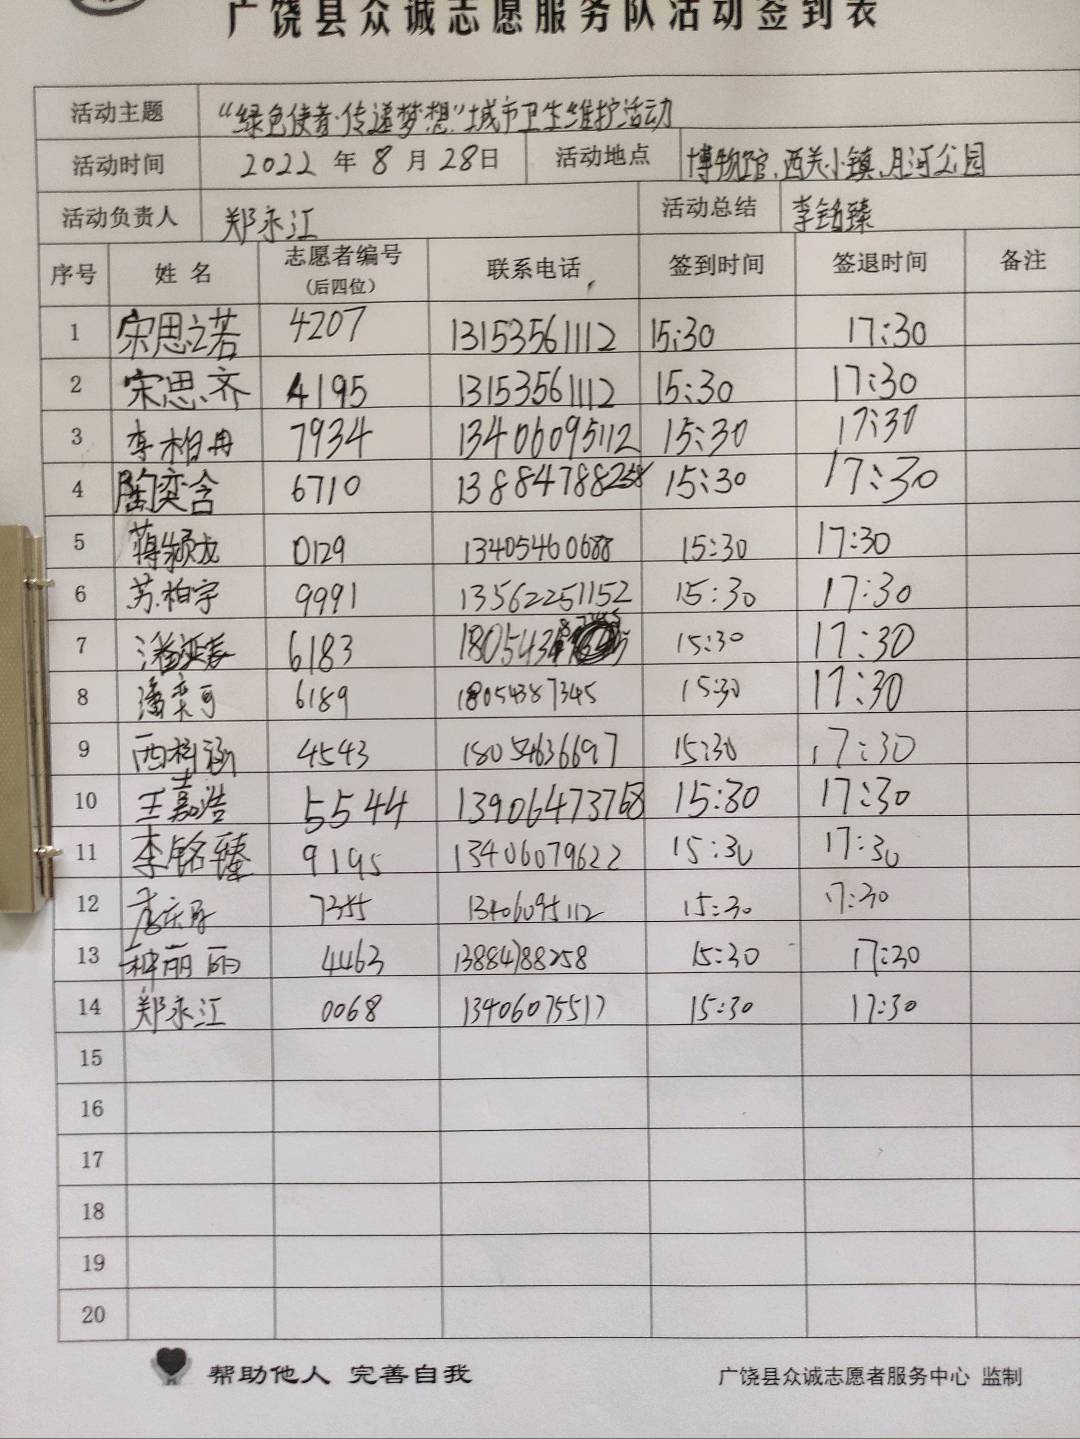 广饶县众诚志愿服务队活动签到表
活动主题 “绿色使者·传递梦想”城市卫生维护活动
活动时间 2022 年 8 月 28日 活动地点 博物馆、西关小镇、月河公园
活动负责人 郑永江 活动总结 李铭臻
序号 姓名 志愿者编号（后四位） 联系电话 签到时间 签退时间 备注
1 宋思之若 4207 13153561112 15:30 17:30
2 宋思齐 4195 13153561112 15:30 17:30
3 李柏冉 7934 13406095112 15:30 17:30
4 陶奕含 6710 13884788258 15:30 17:30
5 蒋颍龙 0129 13405460688 15:30 17:30
6 苏柏宇 9991 13562251152 15:30 17:30
7 6183 15:30 17:30
8 潘奕可 6189 18054387345 15:30 17:30
9 4543 18054636697 15:30 17:30
10 王嘉浩 5544 13906473768 15:30 17:30
11 李铭臻 9195 13406079622 15:30 17:30
12 7355 13406095112 15:30 17:30
13 种丽丽 4463 13884788258 15:30 17:30
14 郑永江 0068 13406075517 15:30 17:30
15
16
17
18
19
20
帮助他人 完善自我 广饶县众诚志愿者服务中心 监制